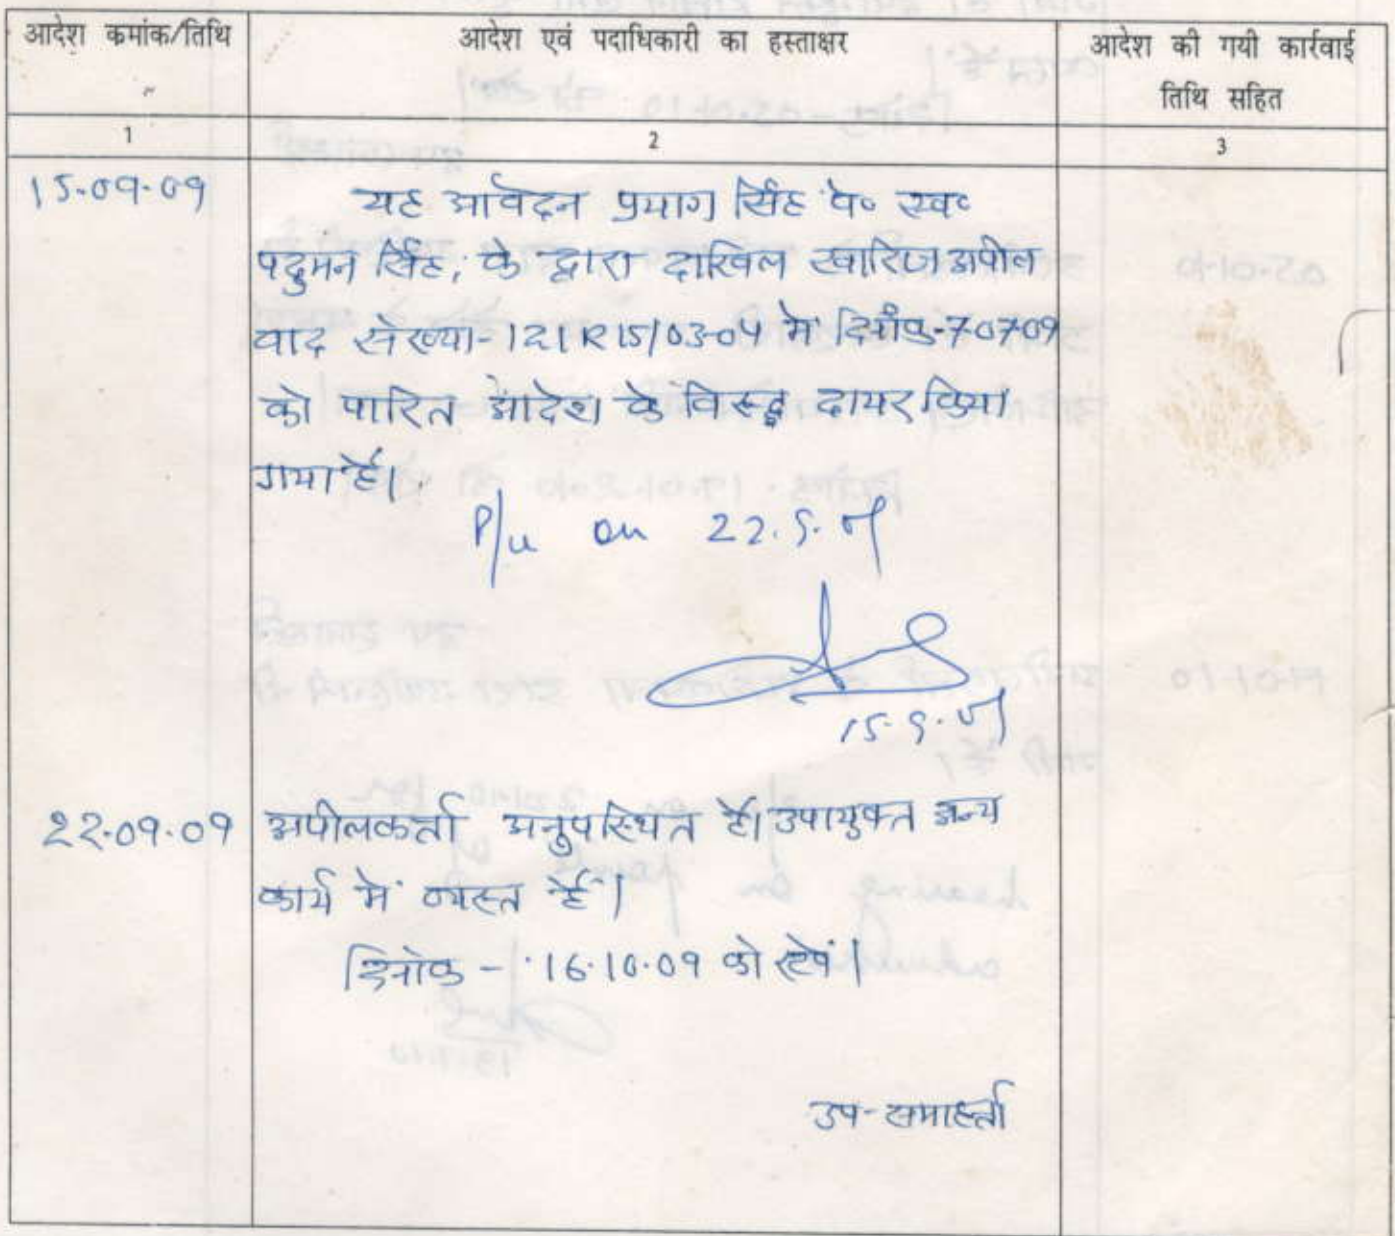 आदेश कमांक/तिथि
आदेश एवं पदाधिकारी का हस्ताक्षर
आदेश की गयी कार्रवाई
तिथि सहित
1
2
3
15-09-09
यह आवेदन प्रयाग सिंह पे० स्व०
पदुमन सिंह, के द्वारा दाखिल खारिज अपील
वाद संख्या-121R15/03-04 में दिनाँक-7.07.09
को पारित आदेश के विरुद्ध दायर किया
गया है।
P/u on 22.9.09
15.9.09
22.09.09
अपीलकर्ता अनुपस्थित है। उपायुक्त अन्य
कार्य में व्यस्त हैं।
दिनांक - 16.10.09 को रखें।
उप-समाहर्ता